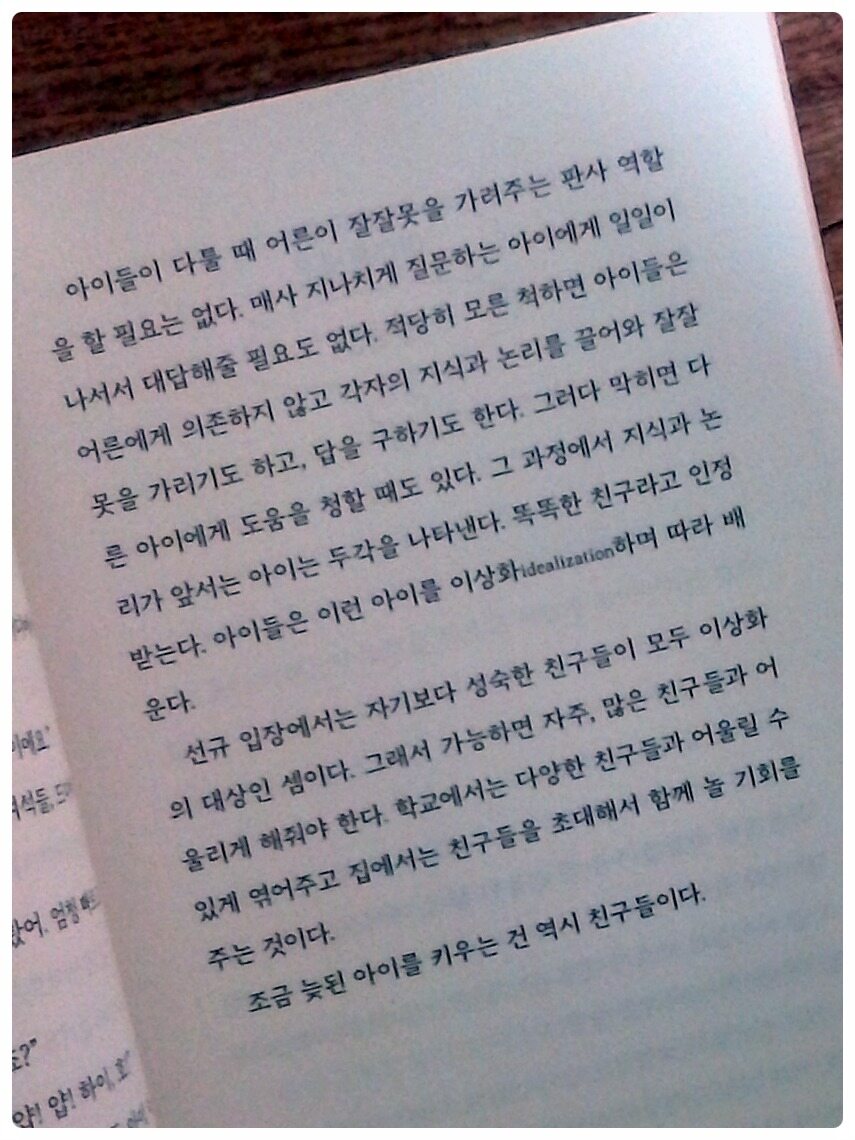 아이들이 다툴 때 어른이 잘잘못을 가려주는 판사 역할
을 할 필요는 없다. 매사 지나치게 질문하는 아이에게 일일이
나서서 대답해줄 필요도 없다. 적당히 모른 척하면 아이들은
어른에게 의존하지 않고 각자의 지식과 논리를 끌어와 잘잘
못을 가리기도 하고, 답을 구하기도 한다. 그러다 막히면 다
른 아이에게 도움을 청할 때도 있다. 그 과정에서 지식과 논
리가 앞서는 아이는 두각을 나타낸다. 똑똑한 친구라고 인정
받는다. 아이들은 이런 아이를 이상화idealization하며 따라 배
운다.
선규 입장에서는 자기보다 성숙한 친구들이 모두 이상화
의 대상인 셈이다. 그래서 가능하면 자주, 많은 친구들과 어
울리게 해줘야 한다. 학교에서는 다양한 친구들과 어울릴 수
있게 엮어주고 집에서는 친구들을 초대해서 함께 놀 기회를
주는 것이다.
조금 늦된 아이를 키우는 건 역시 친구들이다.
이에요'
석들,
어. 엄청
?"
얍! 얍! 하이,